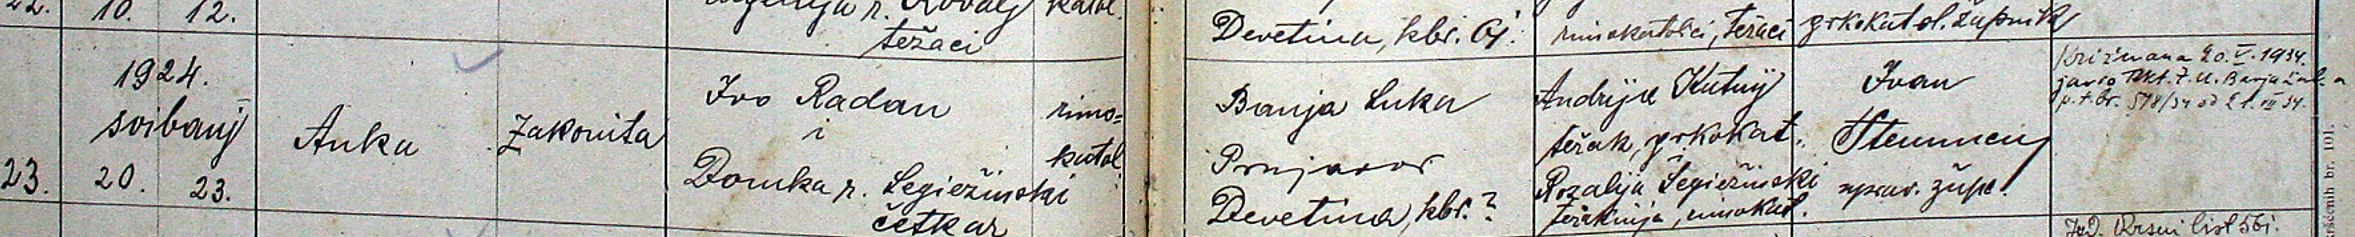 22. 10. 12. r. Kovalj katol.
težaci
Devetina, kbr. 61. rimokatolici, težaci grkokatol. župnik
1924.
svibanj
23. 20. 23.
Anka
zakonita
Ivo Radan
i
Domka r. Segiežinski
četkar
rimo=
katol.
Banja Luka
Prnjavor
Devetina, kbr. ?
Andrija Kutnij
težak, grkokat.
Rozalija Segiežinski
težakinja, rimokat.
Ivan
uprav. župe.
Krizmana 20. V. 1934.
javio Rkt. Ž. U. Banja Luka
p. t. br. 578/34 od 21. III 34.
Izd. Krsni list 56i.
kršćenih br. 101.